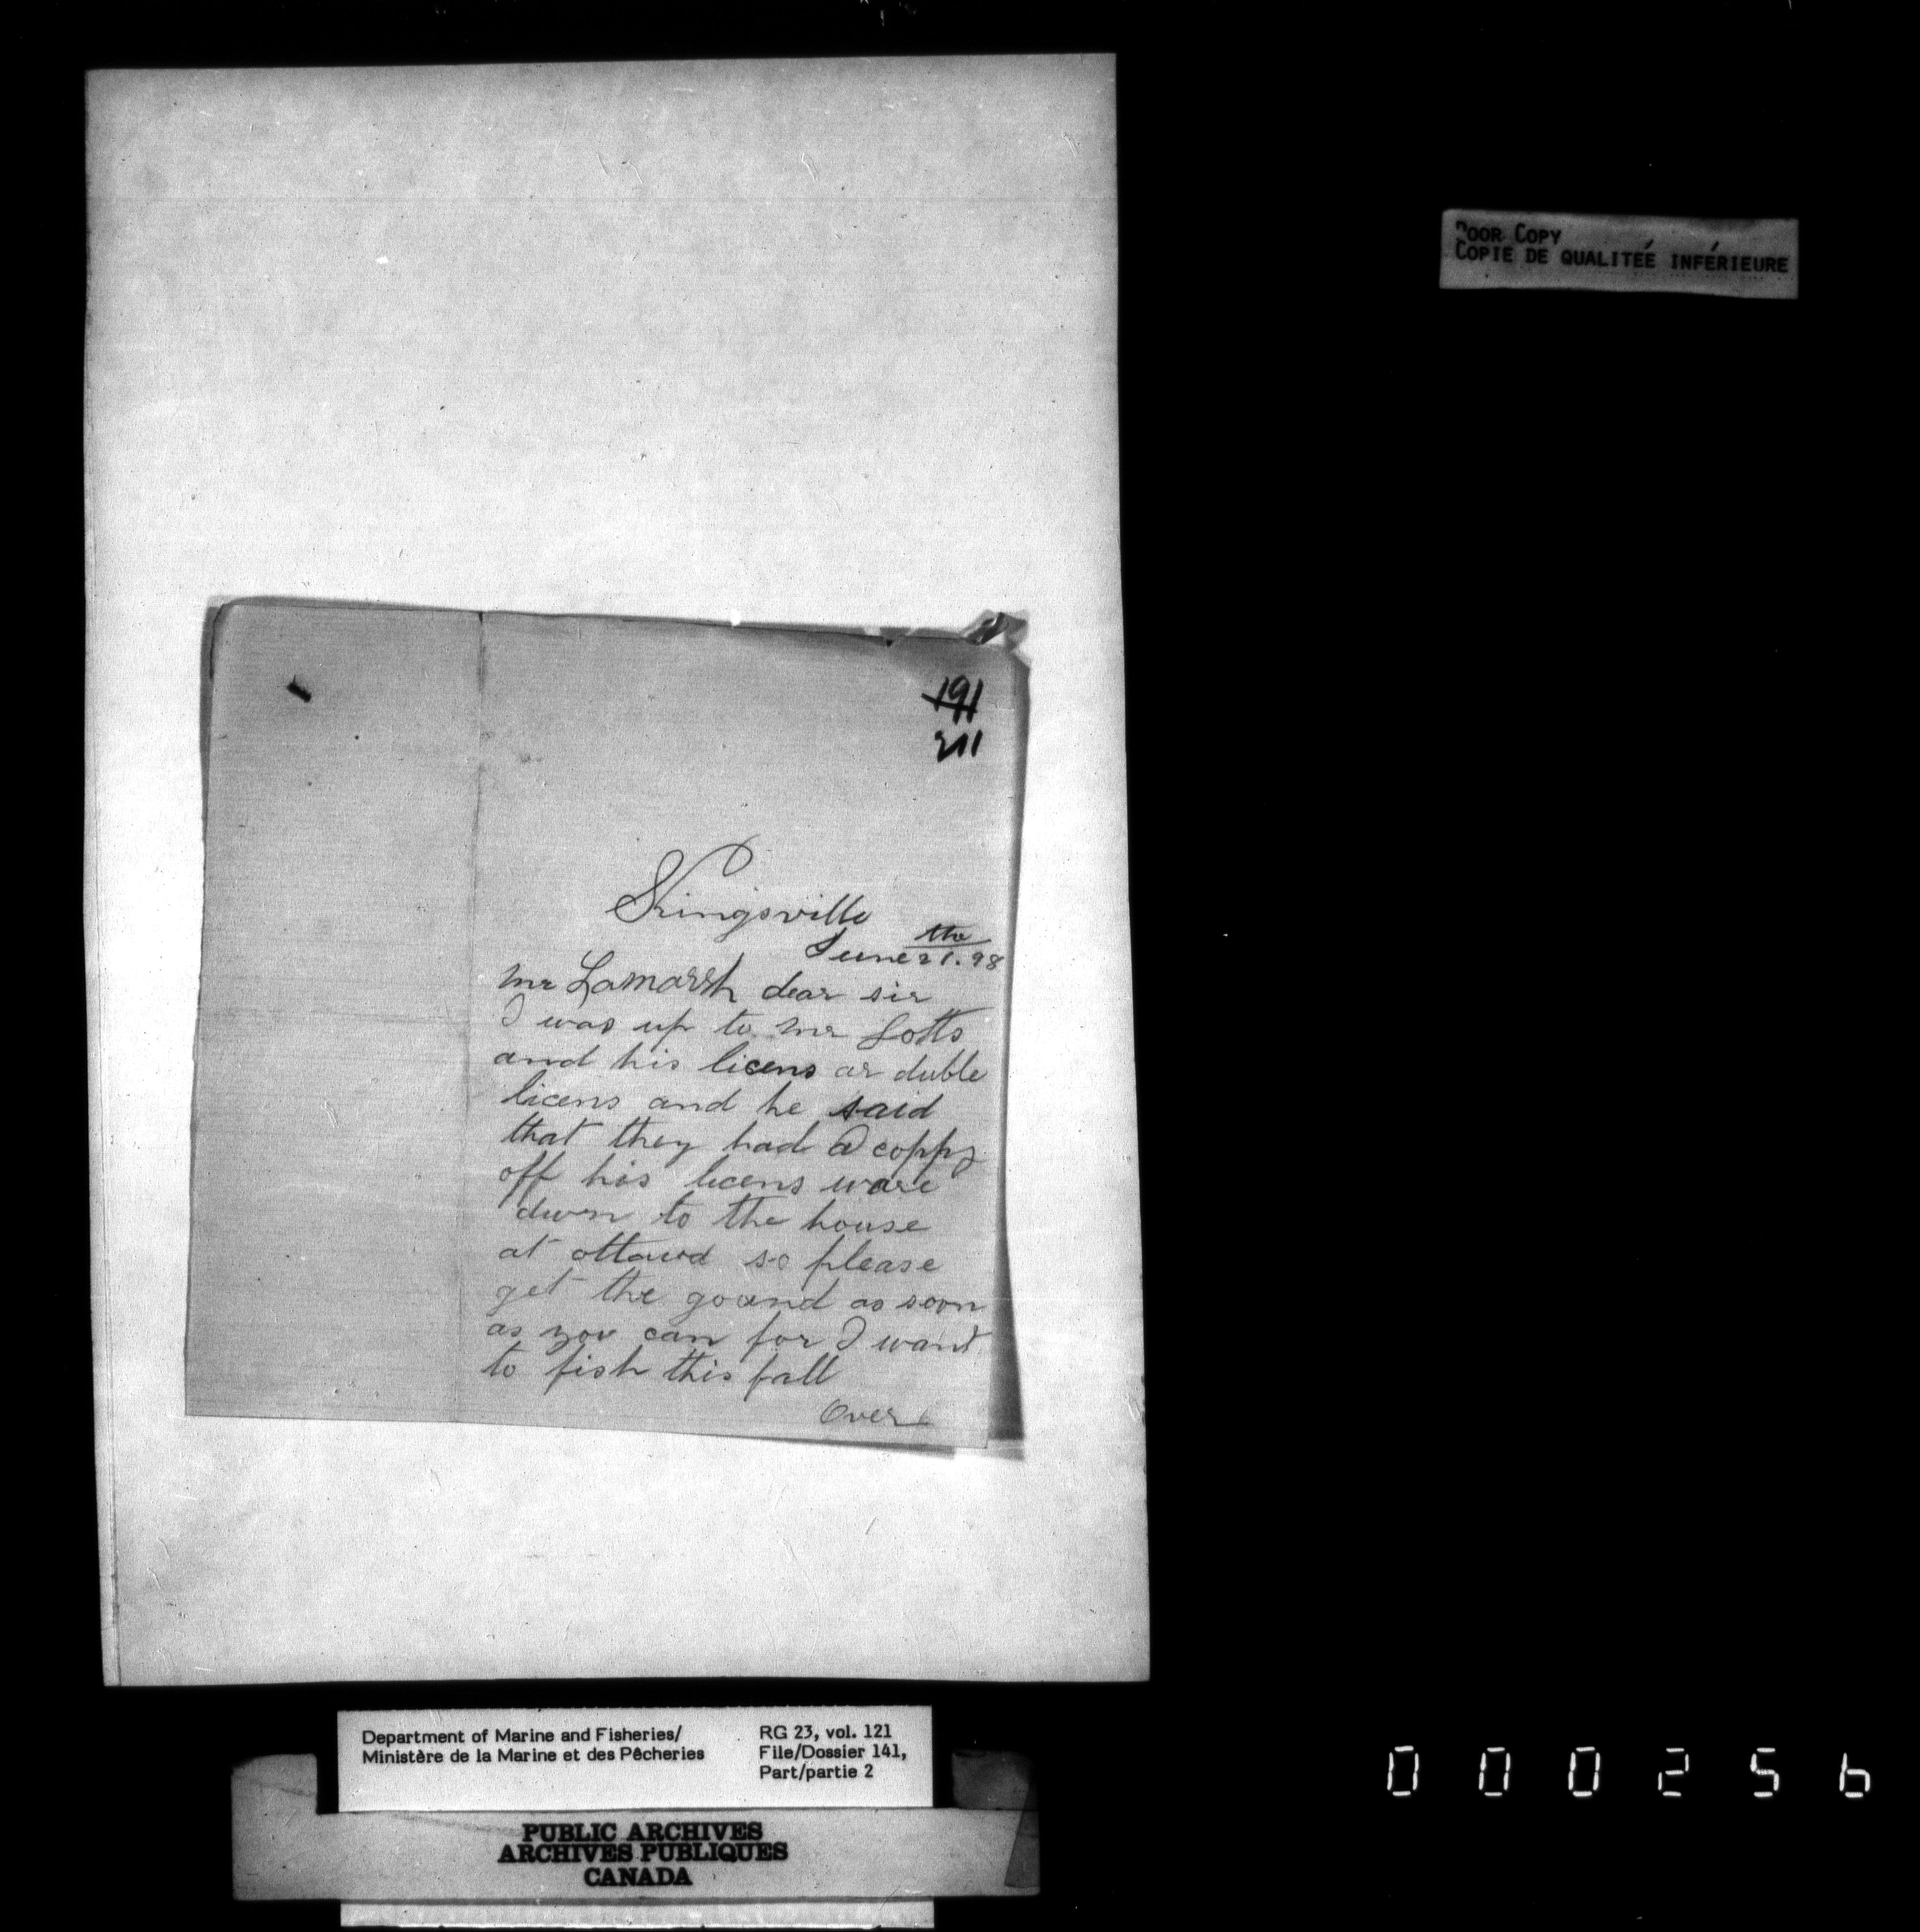 POOR COPY
COPIE DE QUALITÉE INFÉRIEURE
191
211
Kingsville
June 21th. 98
Mr Lamarsh dear sir
I was up to Mr Lotts
and his licens ar duble
licens and he said
that they had a coppy
off his licens ware
duwn to the house
at ottawa so please
get the gound as soon
as you can for I want
to fish this fall
Over
Department of Marine and Fisheries/
Ministère de la Marine et des Pêcheries
RG 23, vol. 121
File/Dossier 141,
Part/partie 2
PUBLIC ARCHIVES
ARCHIVES PUBLIQUES
CANADA
000256